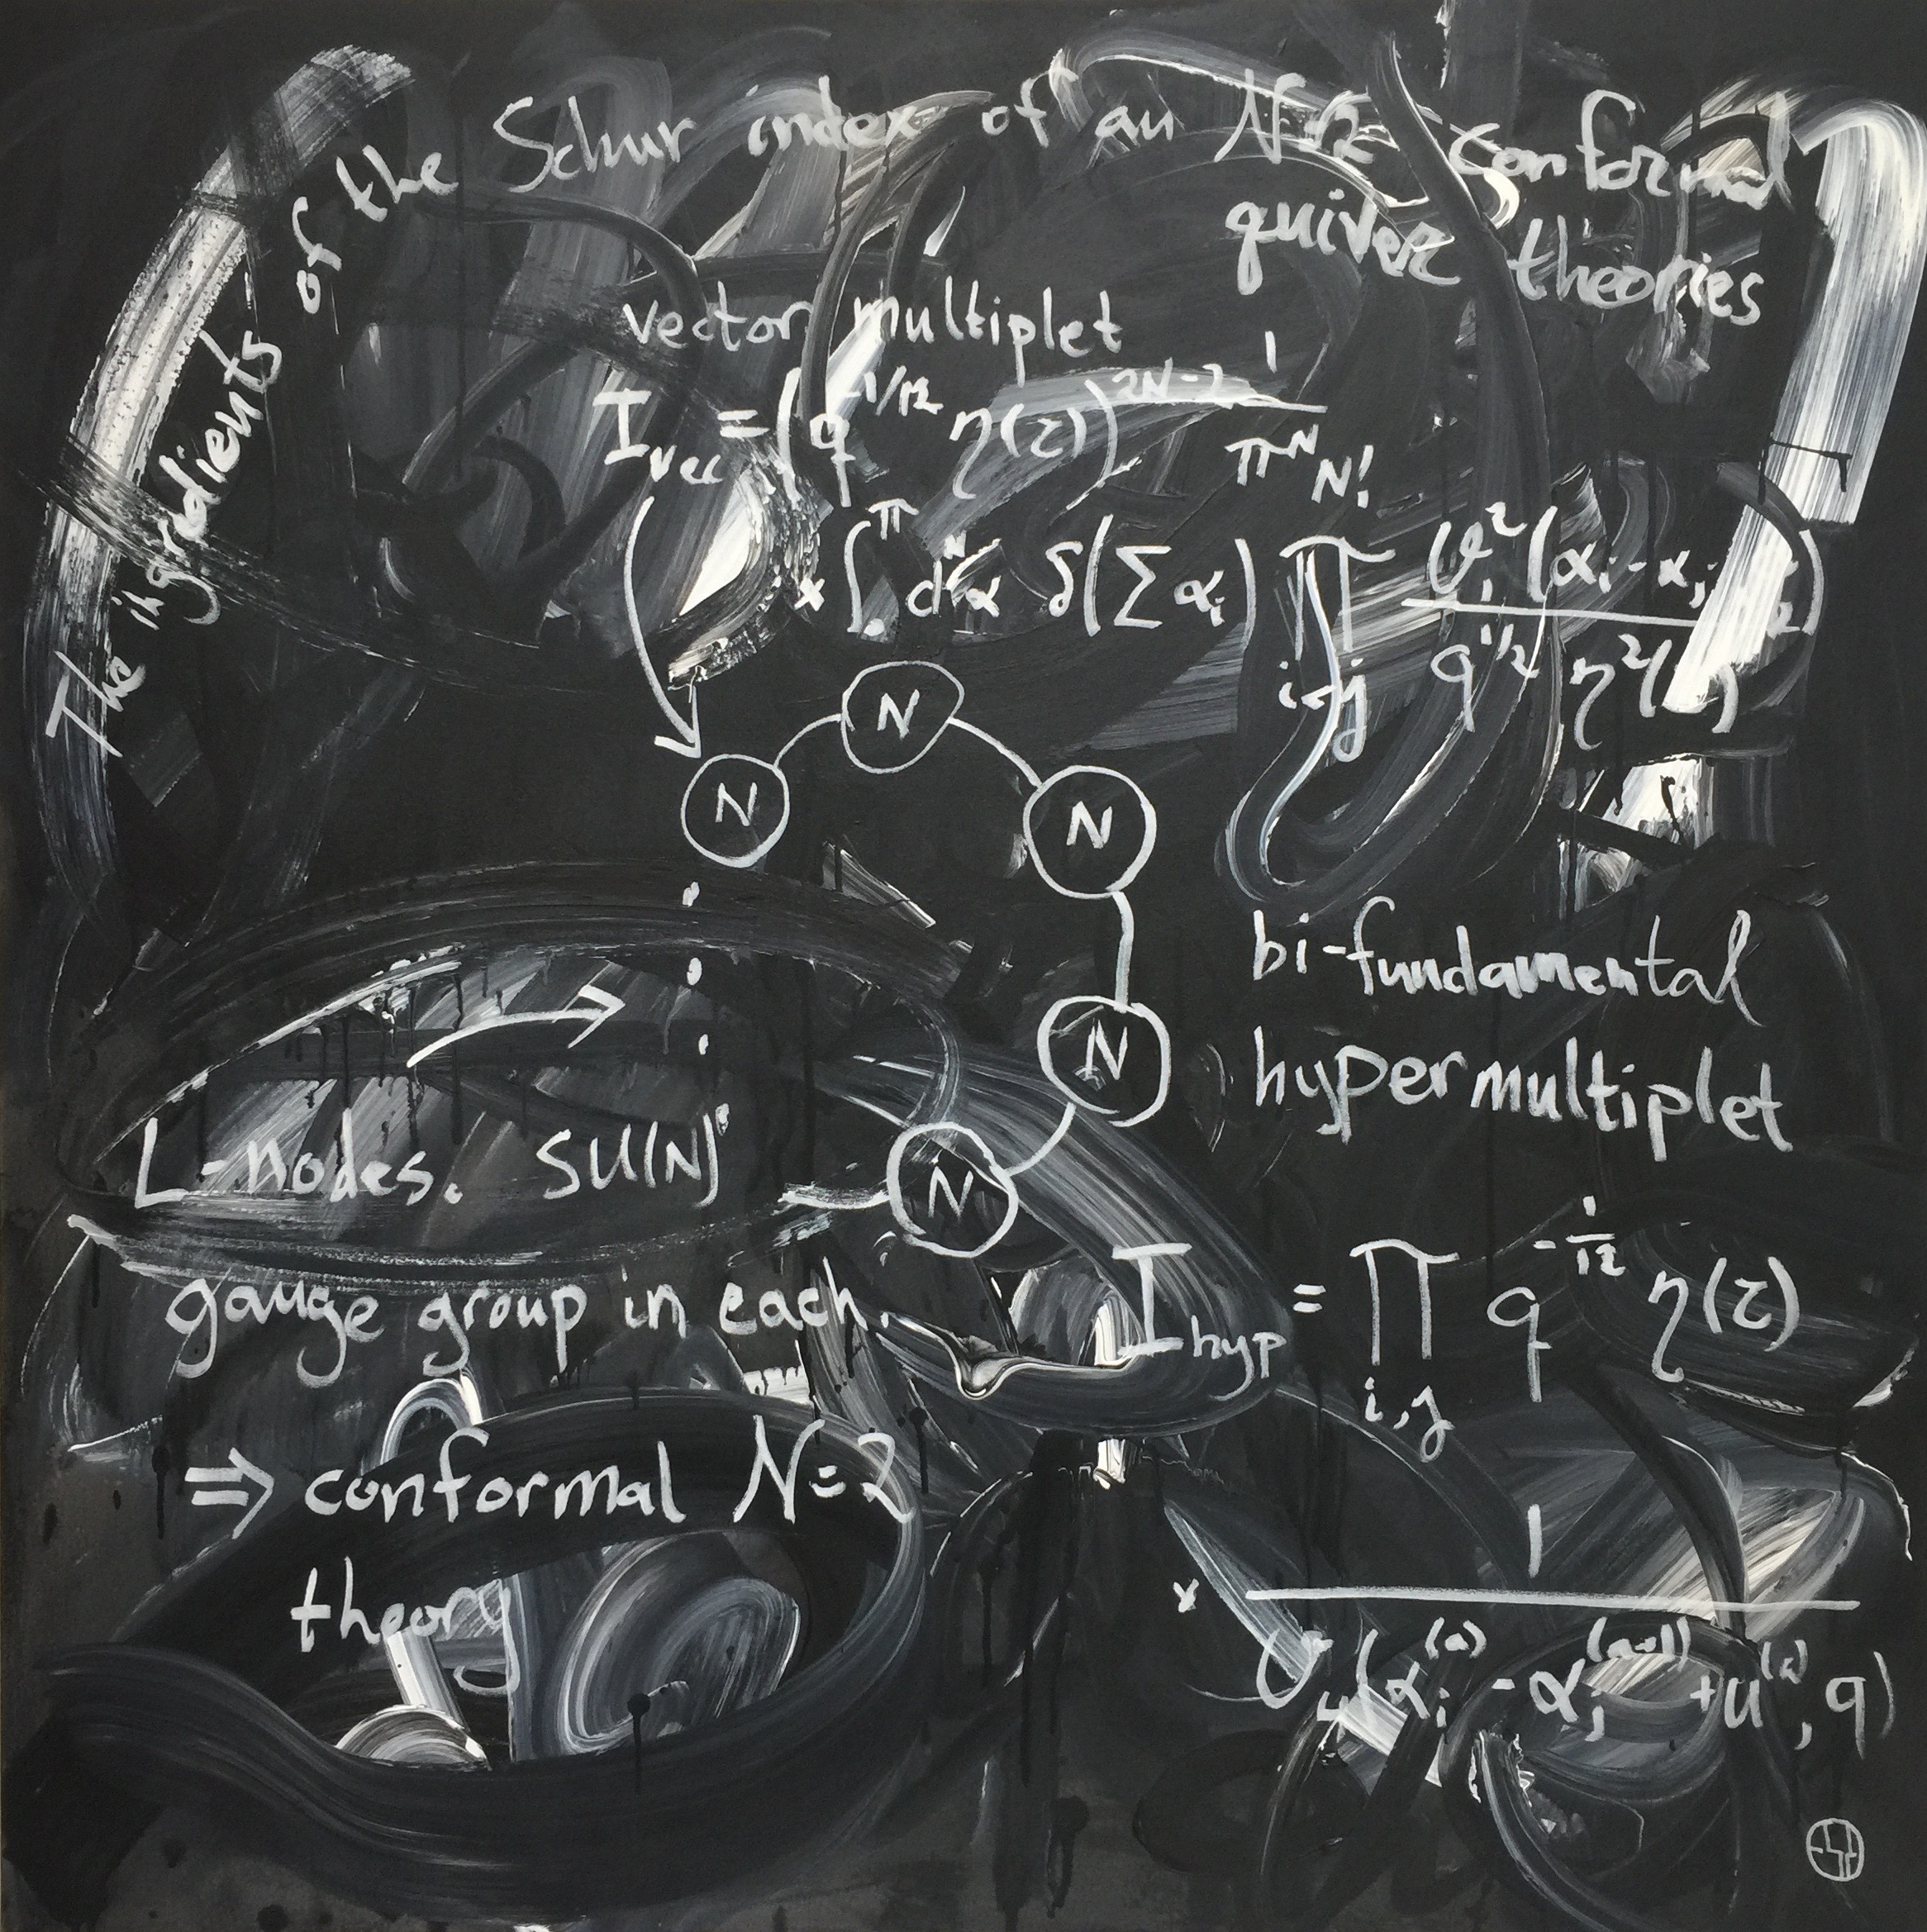 The ingredients of the Schur index of an N=2 conformal
quiver theories
vector multiplet
I_vec = (q^{-1/12} η(τ))^{2N-2} 1/(π^N N!)
× ∫_0^π d^N α δ(∑ α_i) ∏_{i<j} ϑ_1^2(α_i - α_j, q) / (q^{1/2} η^2(τ))
N
N
N
N
N
bi-fundamental
hypermultiplet
L-nodes. SU(N)
gauge group in each.
⇒ conformal N=2
theory
I_hyp = ∏_{i,j} q^{-1/12} η(τ)
× 1 / ϑ_4(α_i^{(a)} - α_j^{(a+1)} + u^{(a)}, q)